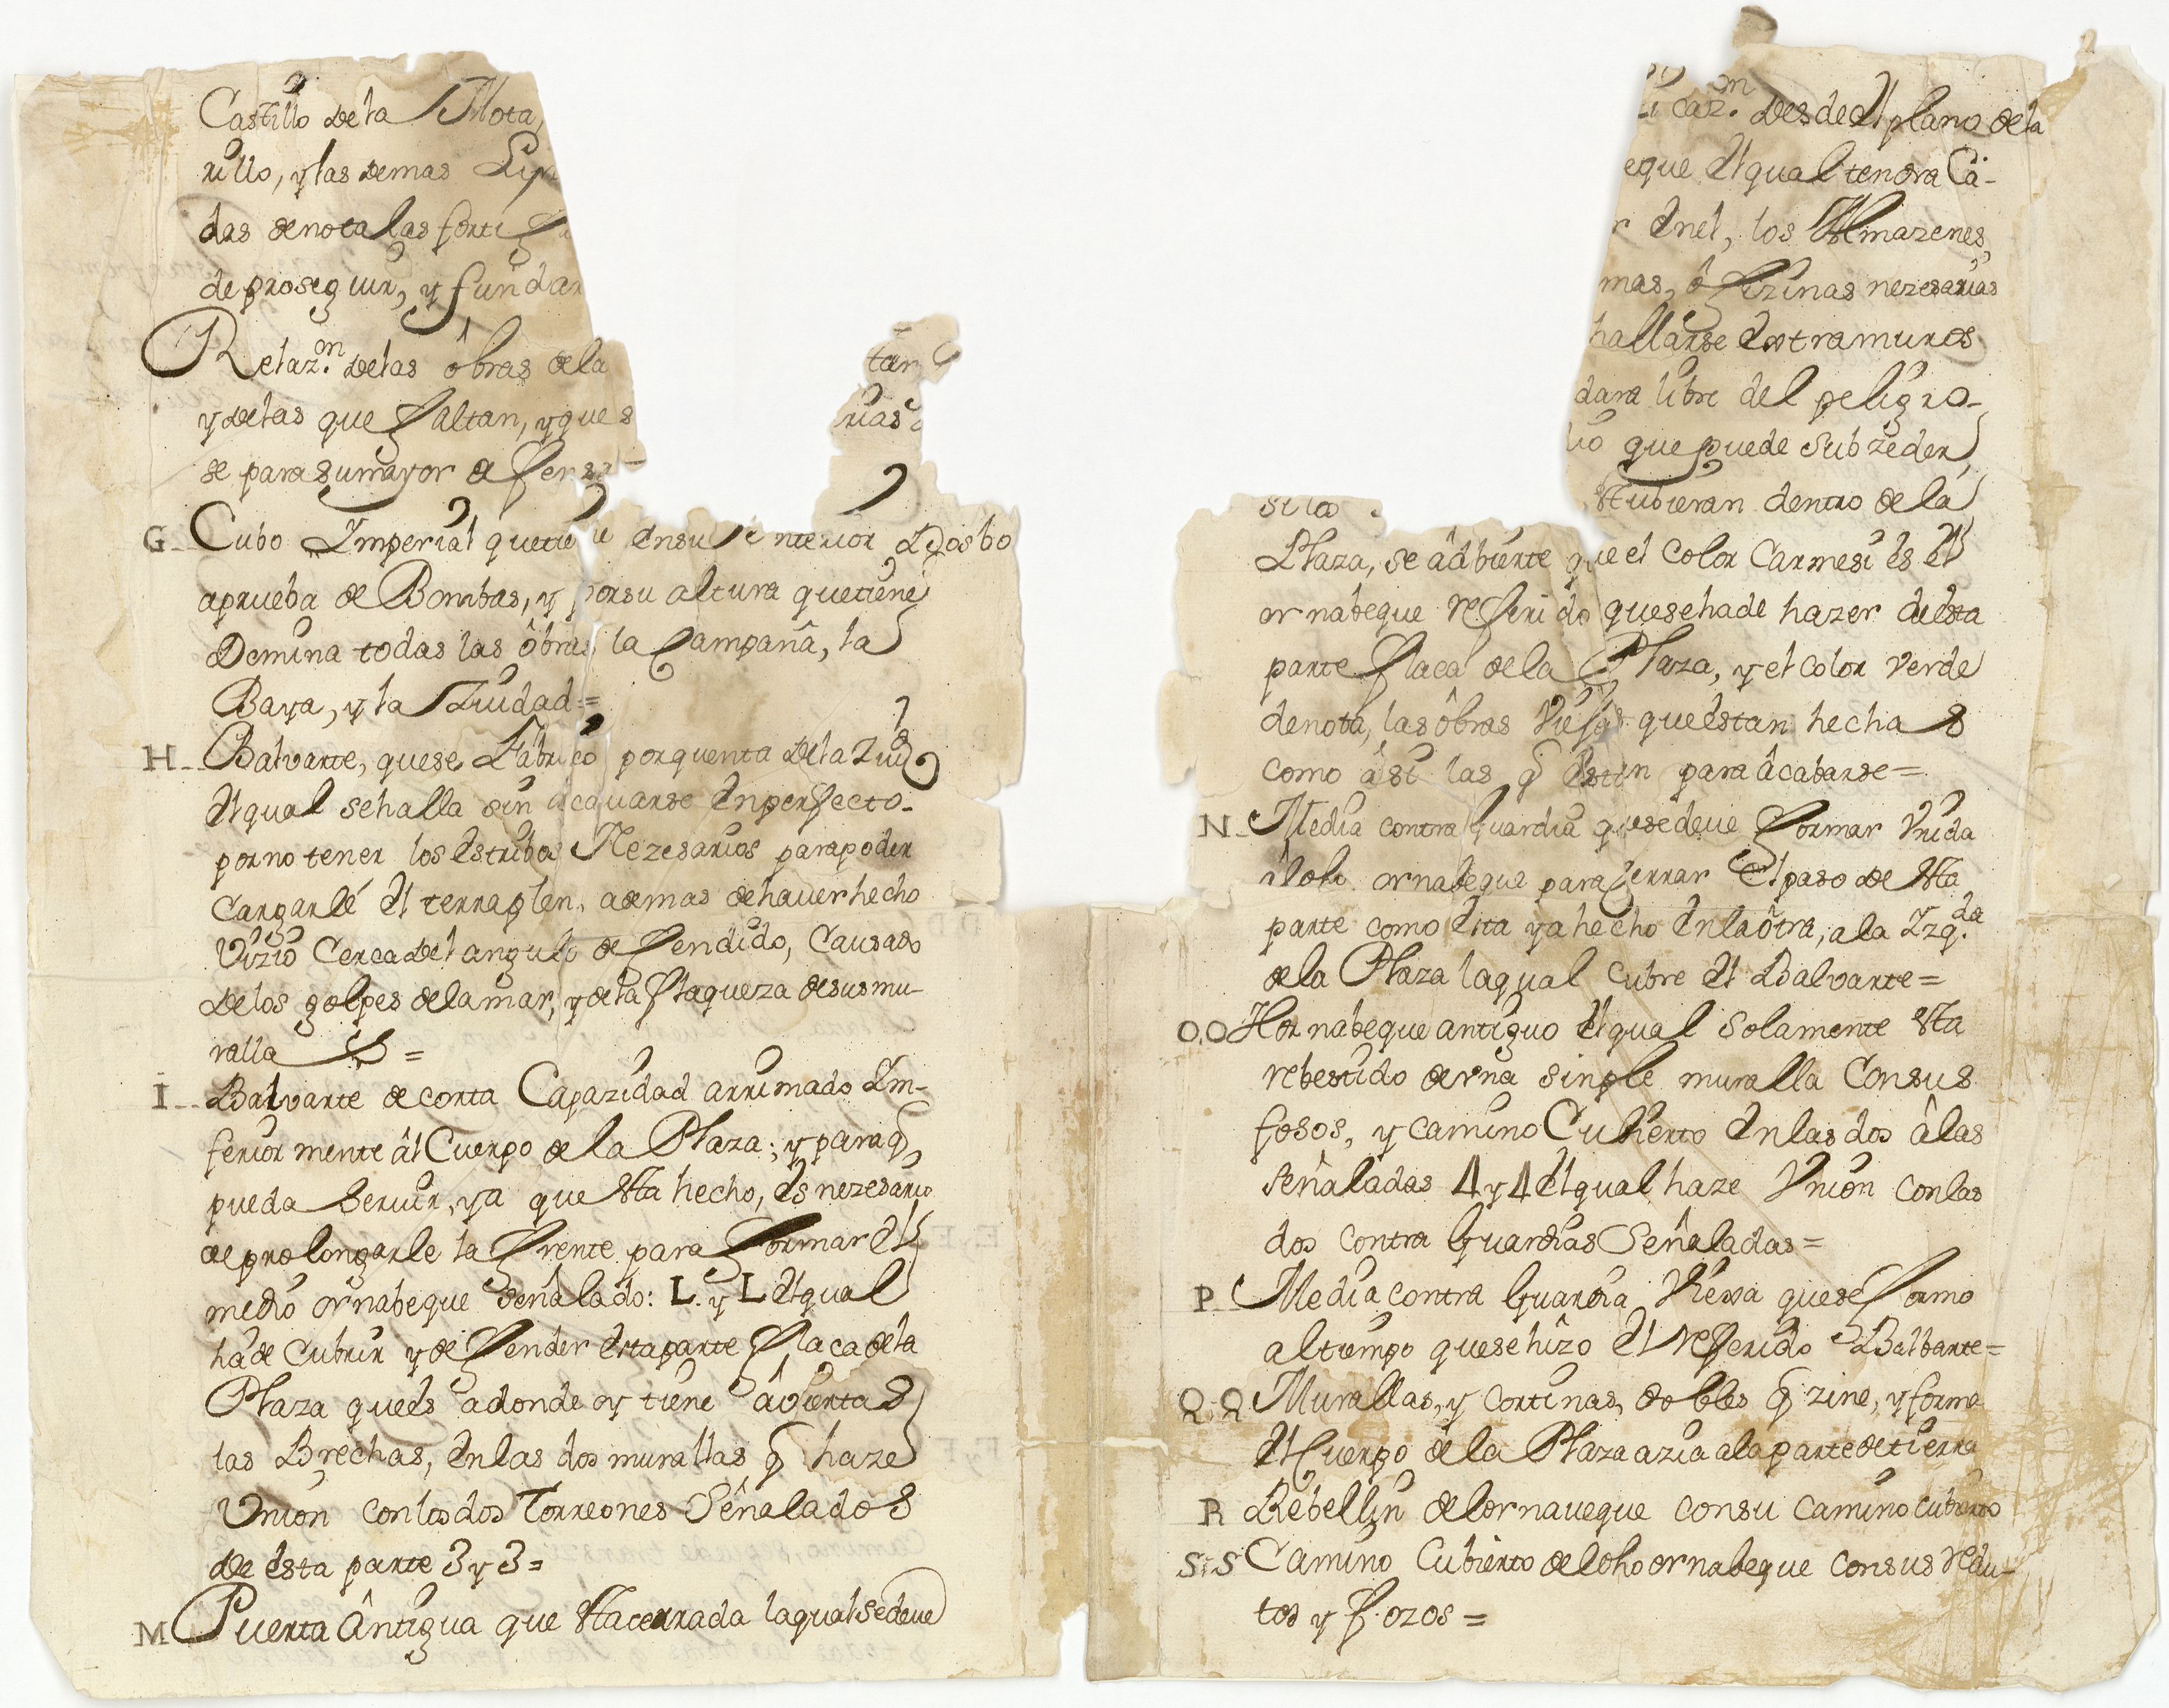 Castillo de la Mota,
rillo, y las demas Lin
das denota las forti
de proseguir, y fundar
Relaz.on delas ôbras de la
y delas que faltan, y que s
se para su mayor defensa
tan
rias
G_ Cubo Imperial que tiene en su interior Dos bo
aprueba de Bombas, y por su altura que tiene
Domina todas las ôbras la Campaña, la
Baya, y la Ziudad=
H_ Balvarte, que se Fabrico por quenta de la Ziud
el qual se halla sin acavarse enperfecto.
por no tener los estribos Nezesarios para poder
Cargarlé el terraplen, ademas de haver hecho
Vizio Cerca del angulo defendido, Causado
De los golpes de la mar, y dela flaqueza de su mu-
ralla =
I_ Balvarte de corta Capazidad arrimado Im-
feriormente âl Cuerpo de la Plaza; y para q
pueda servir, ya que esta hecho, es nezesario
de prolongarle la frente para formar el
medio ornabeque señalado: L. y L el qual
ha de Cubrir y defender esta parte flaca dela
Plaza que es adonde oy tiene âviertas
las Brechas, en las dos murallas q haze
Vnion con los dos Torreones Señalados
de esta parte 3 y 3=
M Puerta Ântigua que esta cerrada la qual se deve
caz.on desde el plano de la
eque el qual tendra Ca-
r en el, los Almazenes,
mas, ôfizinas nezesarias
hallarse extramuros
dara libre del peligro
que puede subzeder,
si lo estubieran dentro de la
Plaza, se âdbierte que el Color Carmesi es el
ornabeque referido que se ha de hazer de esta
parte flaca de la Plaza, y el color verde
denota, las ôbras Viejas que estan hechas
como âsi las q estan para âcabarse=
N_ Media contra Guardia que se deve formar Vnida
âl dho. ornabeque para Zerrar el paso de esta
parte como esta ya hecho en la ôtra, a la Izq.da
de la Plaza la qual cubre el Balvarte=
O.O Hornabeque antiguo el qual solamente esta
rebestido de vna simple muralla Con sus
fosos, y camino Cubierto en las dos âlas
señaladas 4 y 4 el qual haze Vnion con las
dos contra Guardias Señaladas=
P_ Media contra Guardia Vieja que se formo
al tiempo que se hizo el referido Balbarte=
Q.Q Murallas, y cortinas, dobles q zine, y forma
el Cuerpo de la Plaza azia a la parte de tierra
R Rebellin del ornaveque con su camino cubierto
S.S Camino Cubierto del dho ornabeque con sus redu-
tos y fozos =